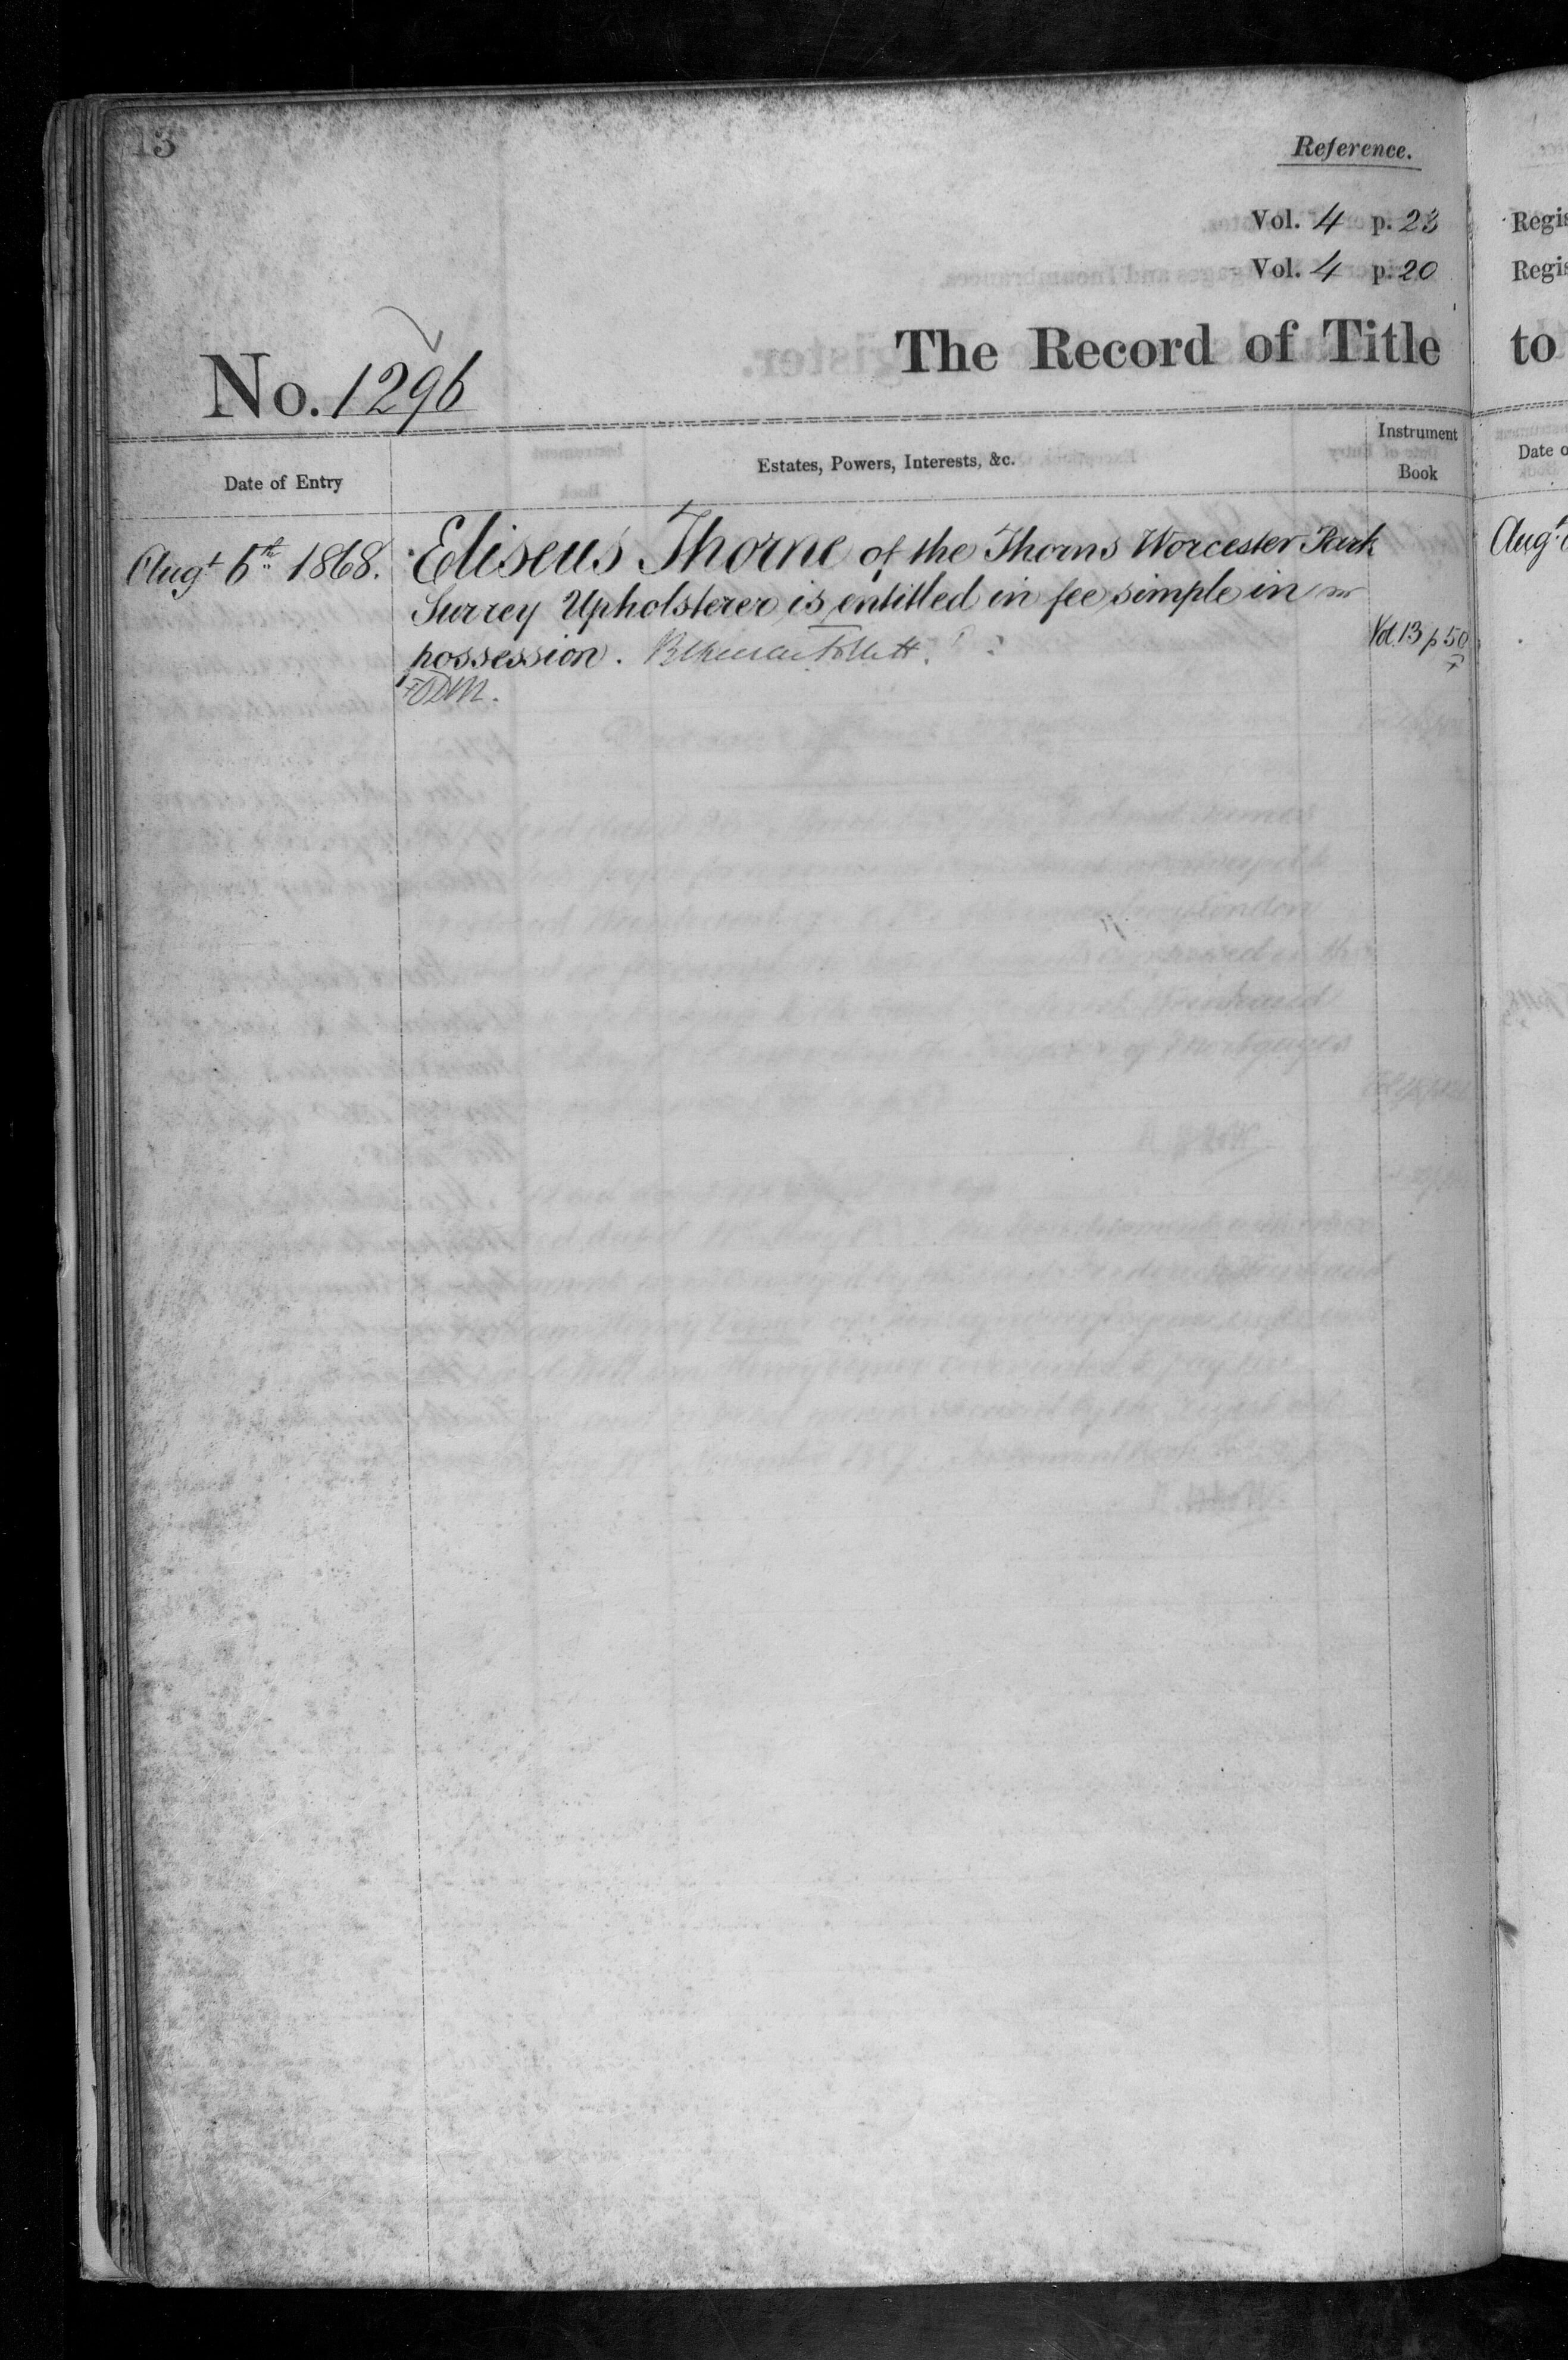 13
Reference.
Vol. 4 p. 23
Vol. 4 p. 20
No. 1296
The Record of Title
Date of Entry
Estates, Powers, Interests, &c.
Instrument
Book
Augt 6th 1868.
Eliseus Thorne of the Thorns Worcester Park
Surrey Upholsterer is entitled in fee simple in
possession. Follett.
Vol. 13 p 50
Regis
Regis
to
Date o
Augt